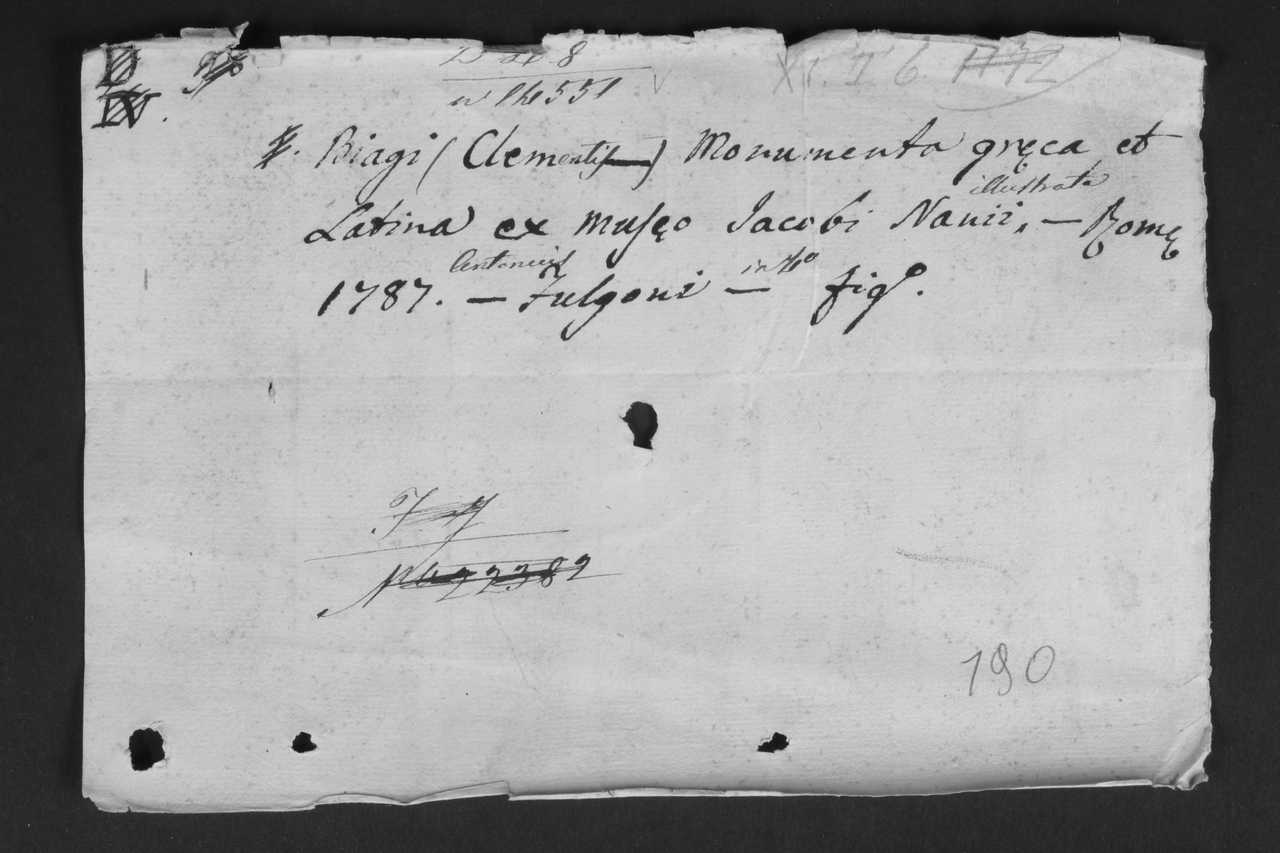 D
IV.
XI. 7. 6. 1772
Biagi (Clementis) Monumenta gręca et
Latina ex Musęo Jacobi Nanii, illustrata — Romę
1787. — Antonius Fulgoni — in 4º figº.
190